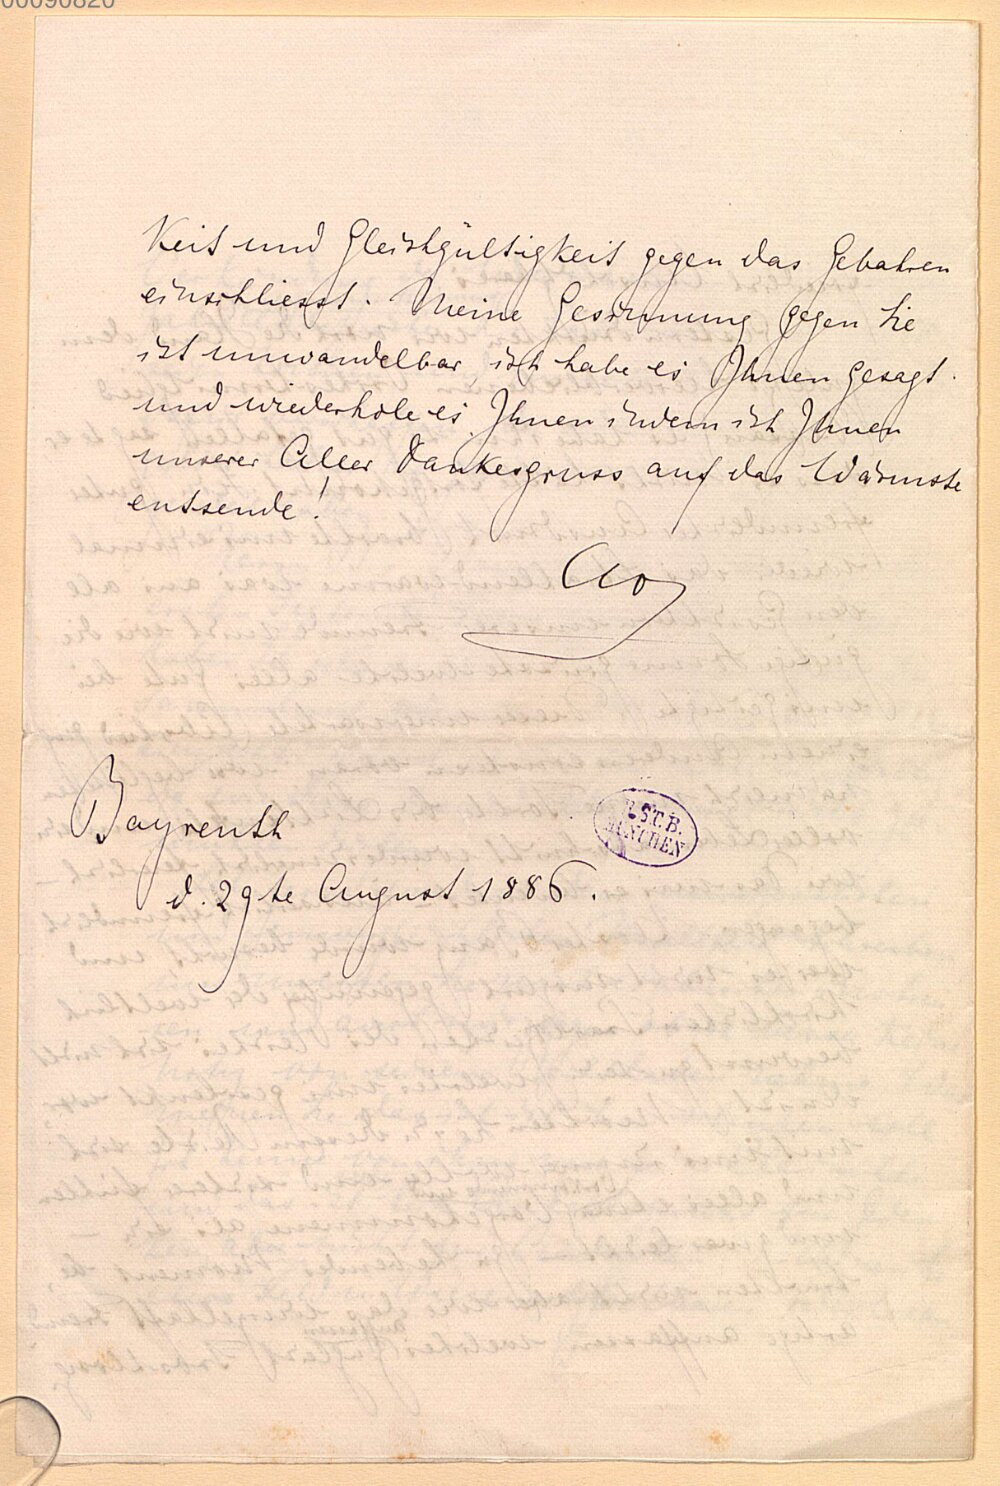 00090820
keit und Gleichgültigkeit gegen das Gebahren
einschliesst. Meine Gesinnung gegen Sie
ist unwandelbar, ich habe es Ihnen gesagt
und wiederhole es Ihnen indem ich Ihnen
unserer Aller Dankesgruss auf das Wärmste
entsende!
Bayreuth
d. 29te August 1886.
R.ST.B.
MÜNCHEN